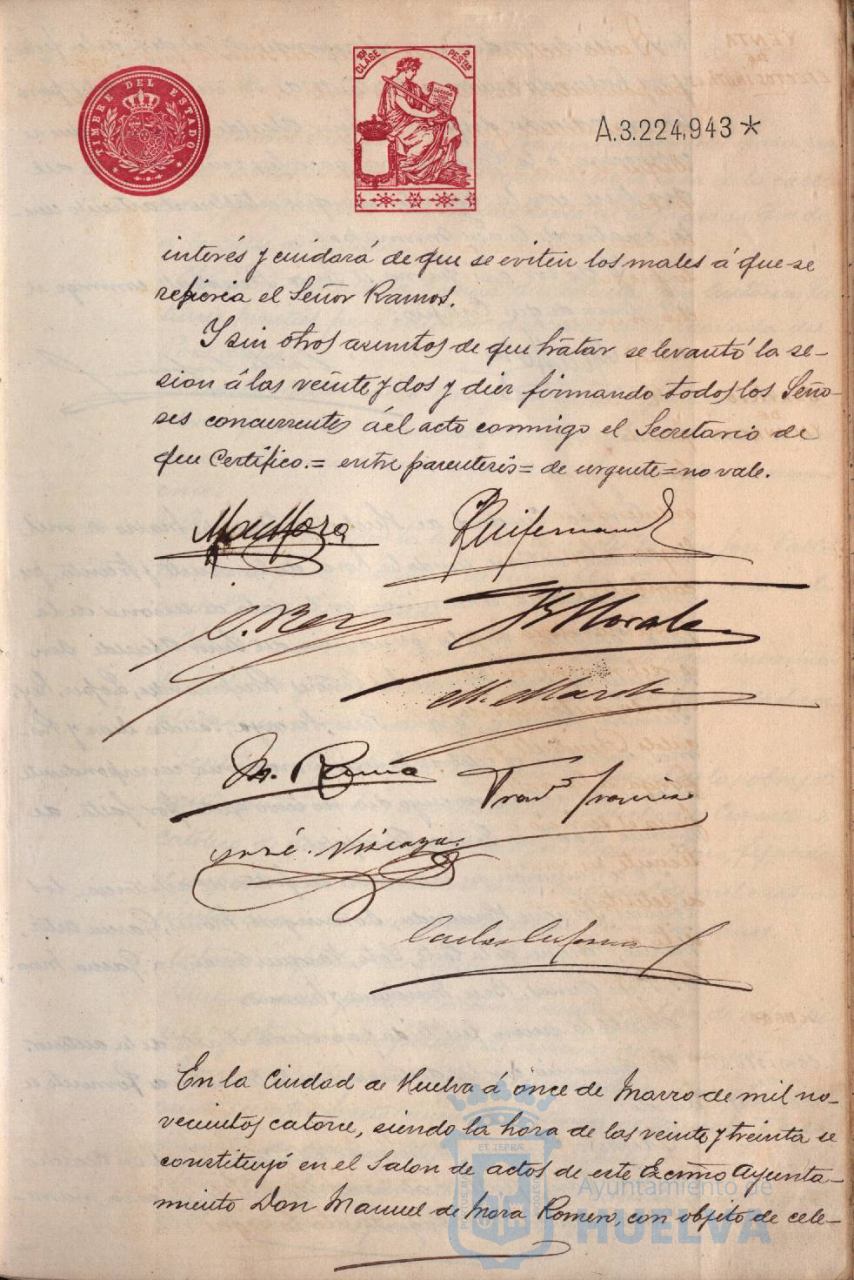 TIMBRE DEL ESTADO
10ª CLASE
2 PESTAS
A.3.224,943*
interés y cuidará de que se eviten los males á que se
referia el Señor Ramos.
Y sin otros asuntos de que tratar se levantó la se-
sion á las veinte y dos y diez firmando todos los Seño-
res concurrentes á el acto conmigo el Secretario de
que Certifico.= entre parentesis= de urgente= no vale.
M. de Mora
C. Rey
Morales
M. Ramos
José Vizcaya
En la Ciudad de Huelva á once de Marzo de mil no-
vecientos catorce, siendo la hora de las veinte y treinta se
constituyó en el Salon de actos de este Excmo Ayunta-
miento Don Manuel de Mora Romero, con objeto de cele-
Ayuntamiento de
HUELVA